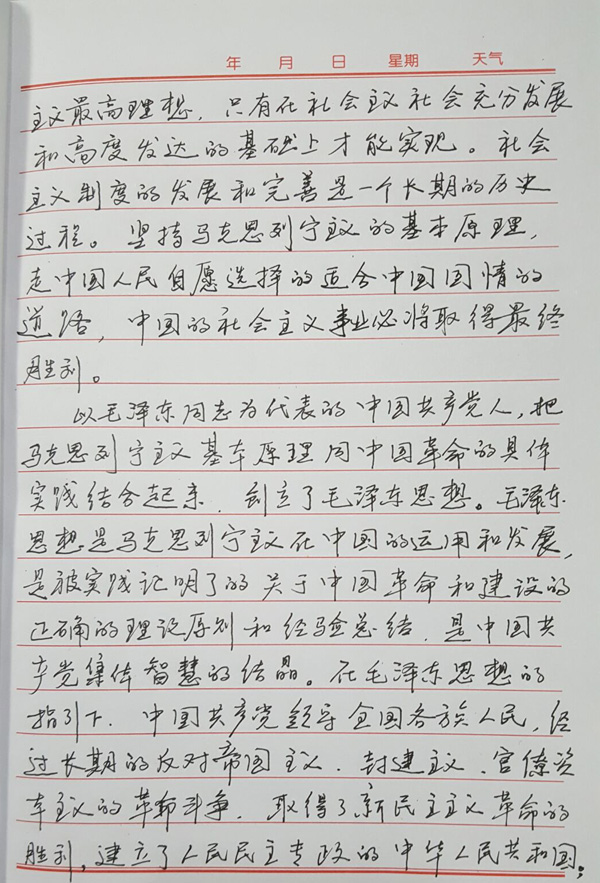 年 月 日 星期 天气
主义最高理想，只有在社会主义社会充分发展
和高度发达的基础上才能实现。社会
主义制度的发展和完善是一个长期的历史
过程。坚持马克思列宁主义的基本原理，
走中国人民自愿选择的适合中国国情的
道路，中国的社会主义事业必将取得最终
胜利。
以毛泽东同志为代表的中国共产党人，把
马克思列宁主义基本原理同中国革命的具体
实践结合起来，创立了毛泽东思想。毛泽东
思想是马克思列宁主义在中国的运用和发展，
是被实践证明了的关于中国革命和建设的
正确的理论原则和经验总结，是中国共
产党集体智慧的结晶。在毛泽东思想的
指引下，中国共产党领导全国各族人民，经
过长期的反对帝国主义、封建主义、官僚资
本主义的革命斗争，取得了新民主主义革命的
胜利，建立了人民民主专政的中华人民共和国；